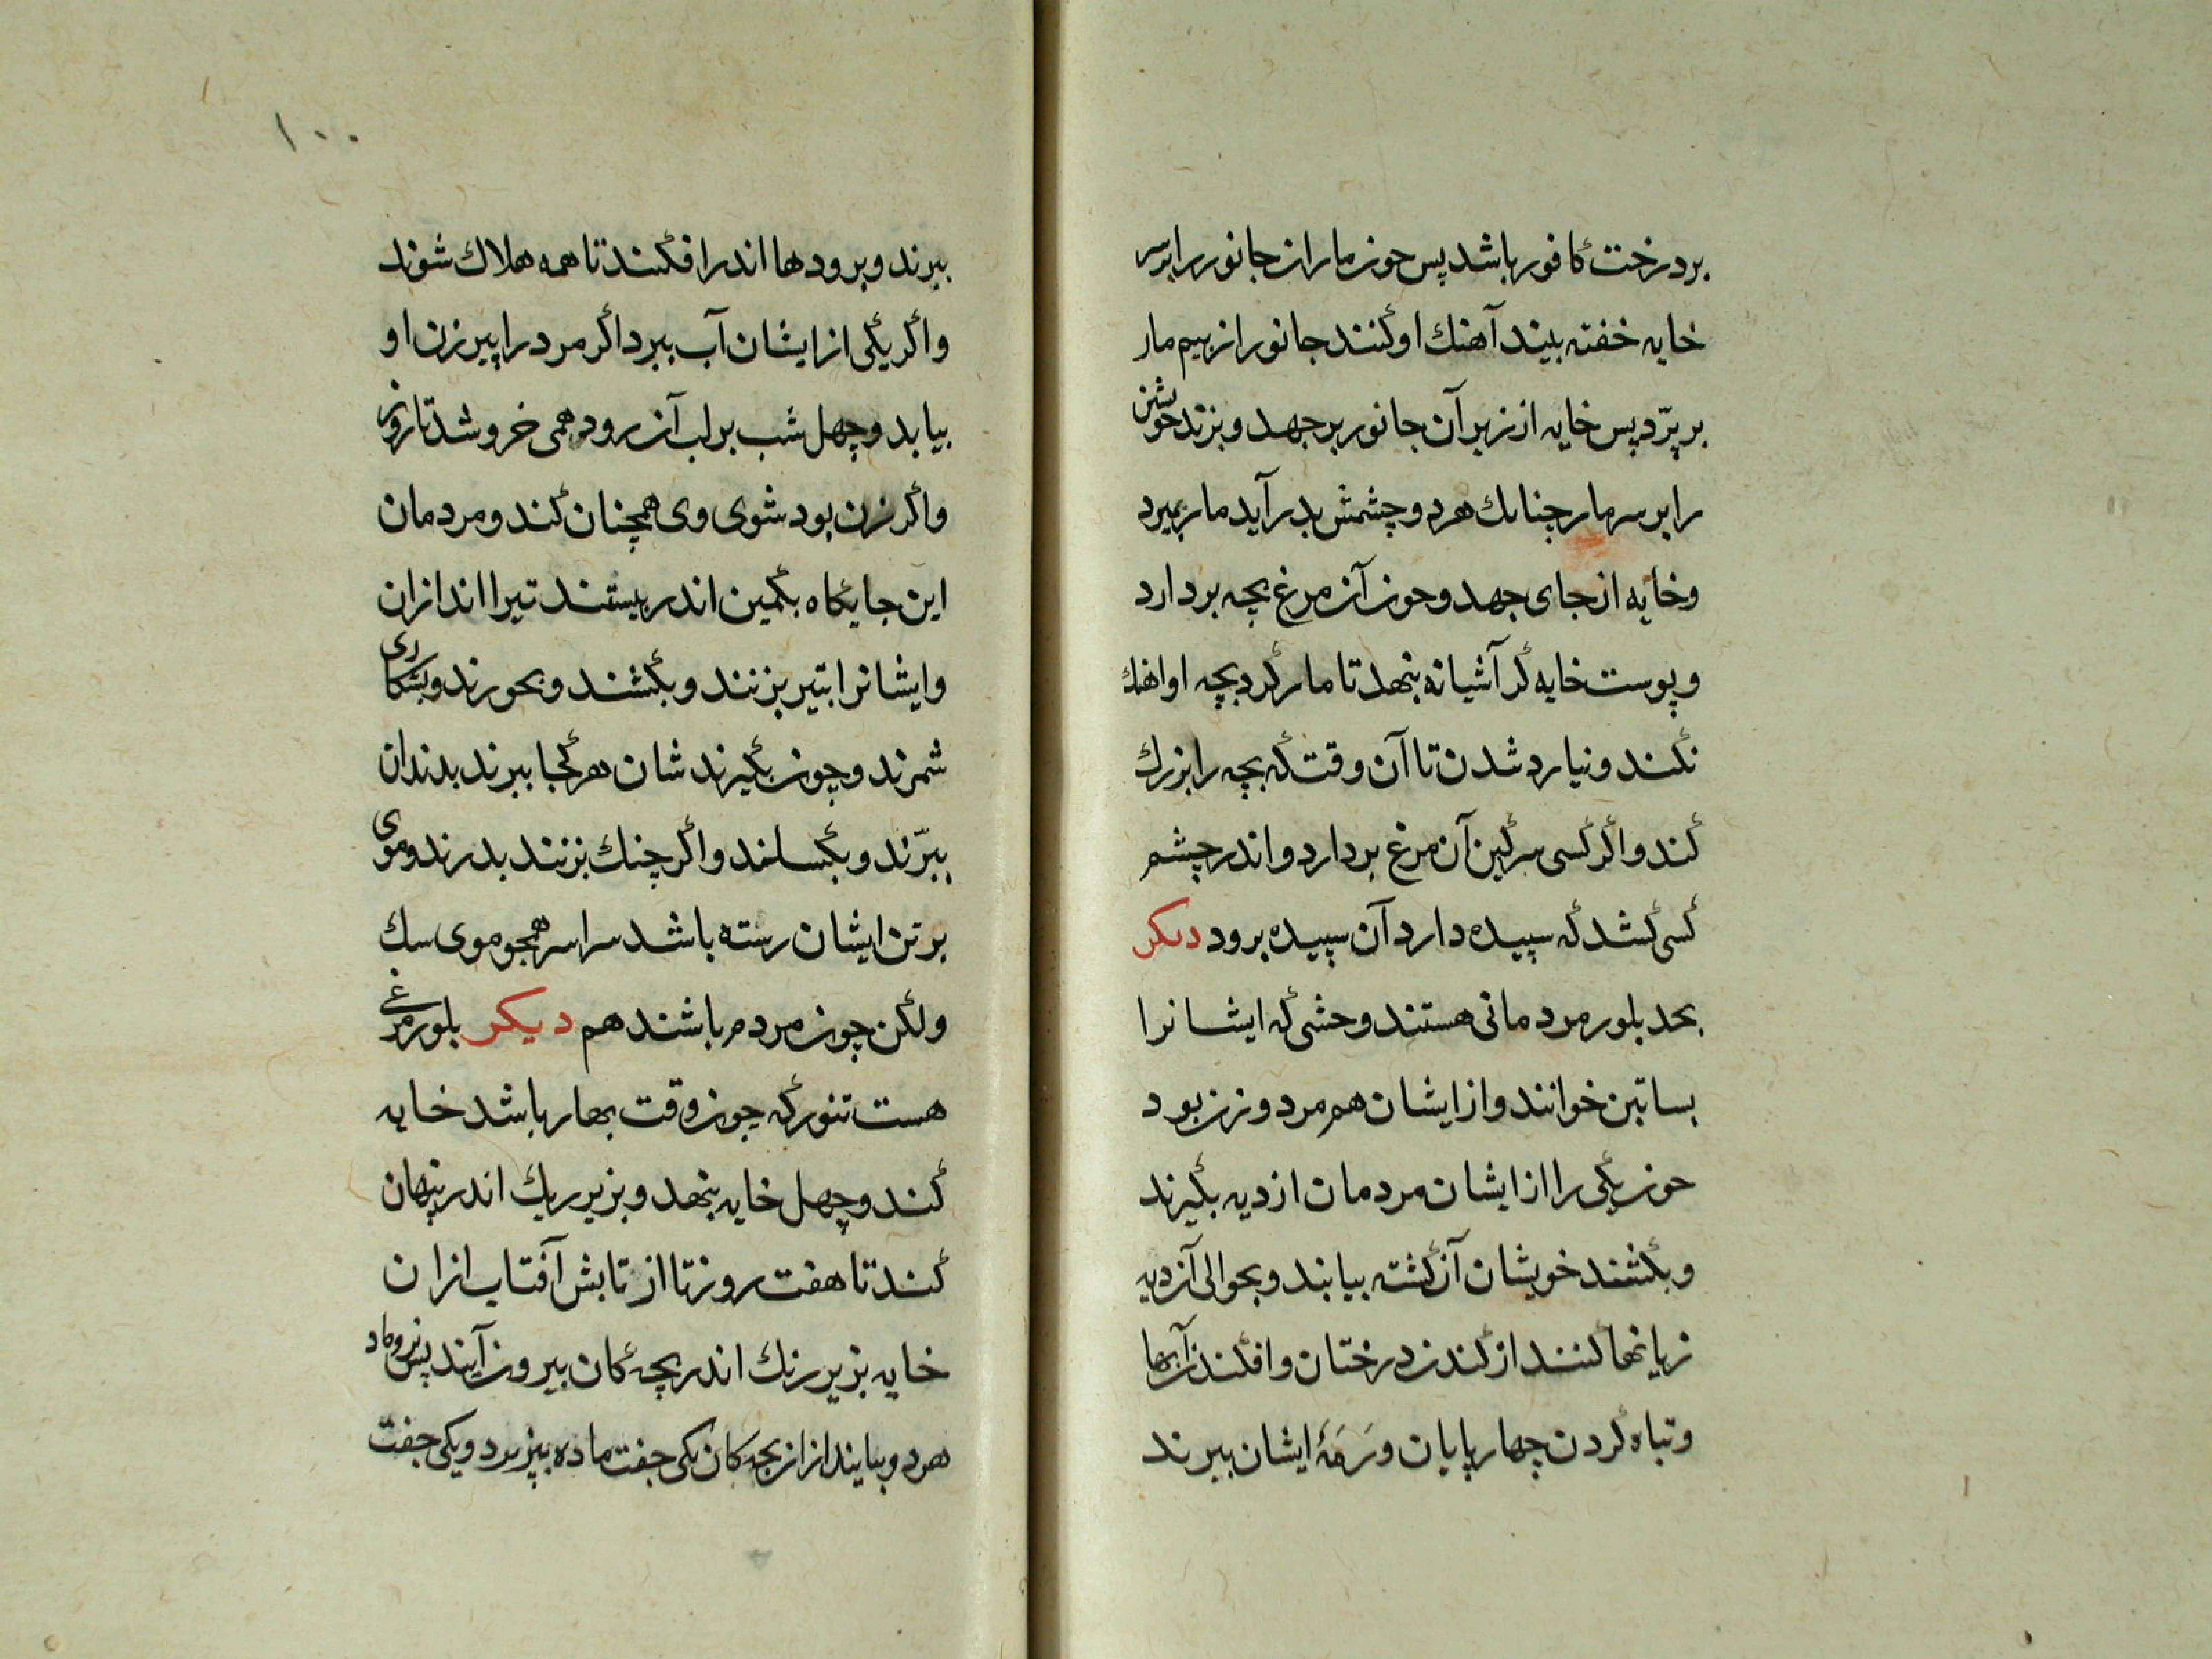 بر درخت کافور باشد پس چون مار ان جانور را بر سر
خایه خفته بیند آهنك او کنند جانور از بیم مار
بر پرّد پس خایه از زیر آن جانور بر جهد و بزند خویشتن
را بر سر مار چنانك هر دو چشمش بدر آید مار بمیرد
و خایه از جای جهد و چون آن مرغ بچه بر دارد
و پوست خایه کرد آشیانه بنهد تا مار کرد بچه او اهنك
نکند و نیارد شدن تا آن وقت که بچه را بزرك
کند و اکر کسی سرکین آن مرغ بردارد و اندر چشم
کسی کشد که سپیده دارد آن سپیده برود دیکر
بحد بلور مردمانی هستند وحشی که ایشانرا
بساتین خوانند و از ایشان هم مرد و زن بود
چون یکی را از ایشان مردمان از دیه بکیرند
و بکشند خویشان آن کشته بیایند و بحوالی آن دیه
زیانها کنند از کندن درختان و افکندن آبها
و تباه کردن چهارپایان و رَمَهٔ ایشان ببرند
۱۰۰
ببرند و برودها اندر افکنند تا همه هلاك شوند
و اکر یکی از ایشان آب ببرد اکر مرد را پیر زن او
بیابد و چهل شب بر لب آن رود همی خروشد تا روز
و اکر زن بود شوی وی همچنان کند و مردمان
این جایکاه بکمین اندر بیستند تیرا اندازان
و ایشانرا بتیر بزنند و بکشند و بخورند و بشکاری
شمرند و چون بکیرند شان هر کجا ببرند بدندان
ببرّند و بکسلند و اکر چنك بزنند بدرند و موی
بر تن ایشان رسته باشد سراسر همچو موی سك
ولکن چون مردم باشند هم دیکر بلور مرغی
هست تنور که چون وقت بهار باشد خایه
کند و چهل خایه بنهد و بزیر ریك اندر پنهان
کند تا هفت روز تا از تابش آفتاب از ان
خایه بزیر رنك اندر بچه کان بیرون آیند پس نر و ماد
هر دو بیایند از ان بچه کان یکی جفت ماده بپزیرد و یکی جفت